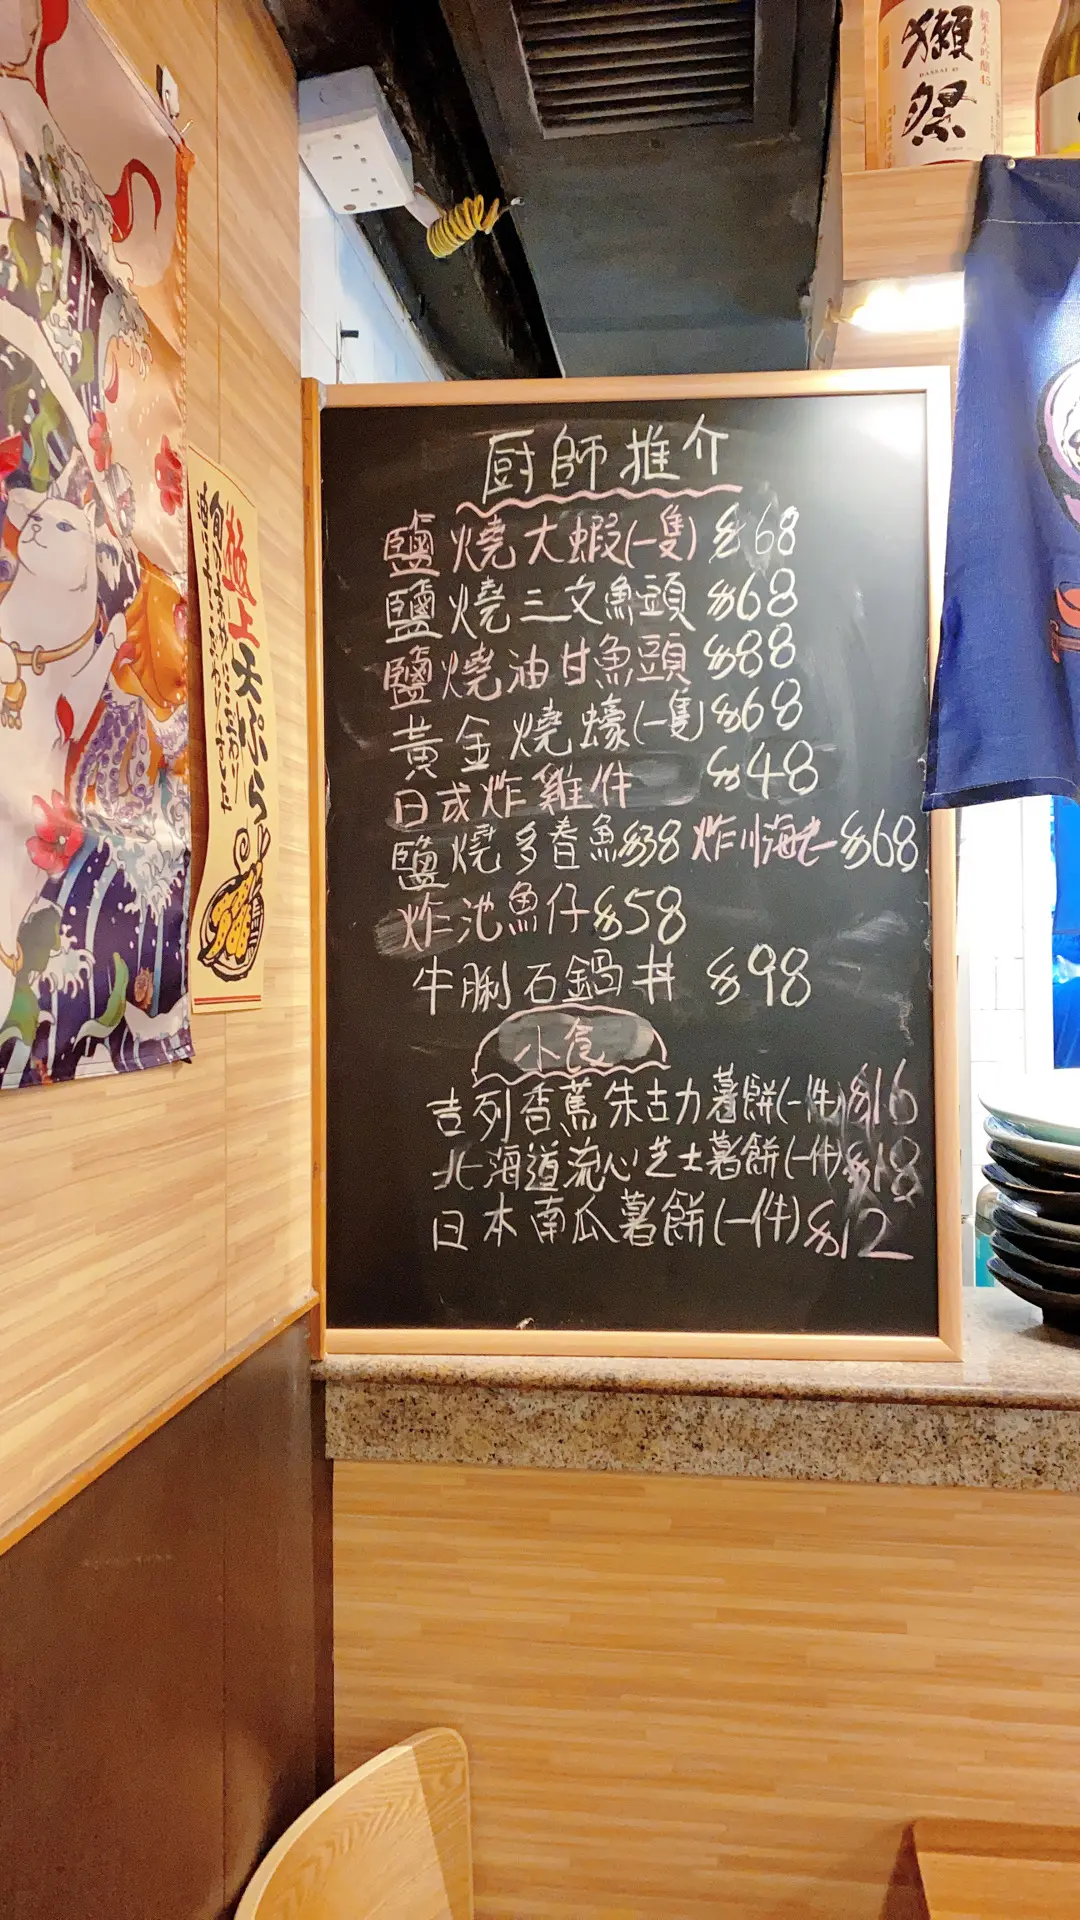 獺祭
DASSAI 45
純米大吟醸45
極上天ぷら
厨師推介
鹽燒大蝦(一隻) $68
鹽燒三文魚頭 $68
鹽燒油甘魚頭 $88
黃金燒蠔(一隻) $68
日式炸雞件 $48
鹽燒多春魚$38 炸川海老 $68
炸池魚仔$58
牛脷石鍋丼 $98
小食
吉列香蕉朱古力薯餅(一件)$16
北海道流心芝士薯餅(一件)$18
日本南瓜薯餅(一件)$12